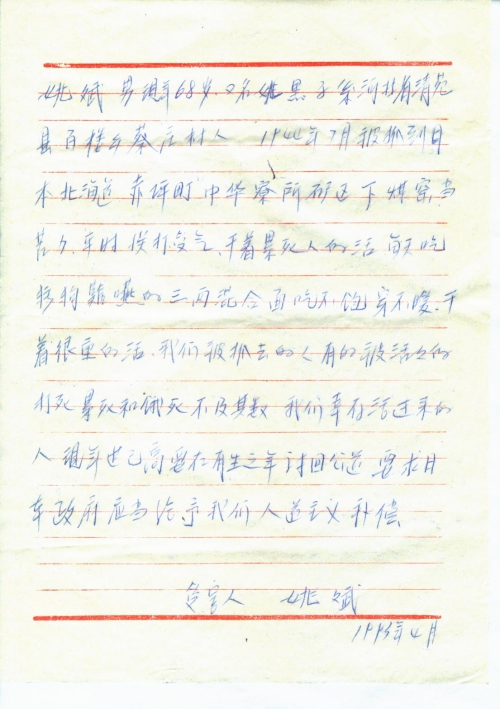 姚斌 男 现年68岁 又名姚黑子 系河北省清苑
县百楼乡蔡庄村人 1944年7月被抓到日
本北海道 赤坪町 中华寮所 砂 下煤窑当
苦力 车时挨打受气、干着累死人的活 每天吃
猪狗 的三两混合面吃不饱穿不暖、干
着很重的活、我们被抓去的人有的被活活的
打死累死和饿死不及其数 我们幸存活过来的
人 现年也已高 要在有生之年讨回公道 要求日
本政府应当给予我们人道主义补偿、
受害人 姚斌
年4月